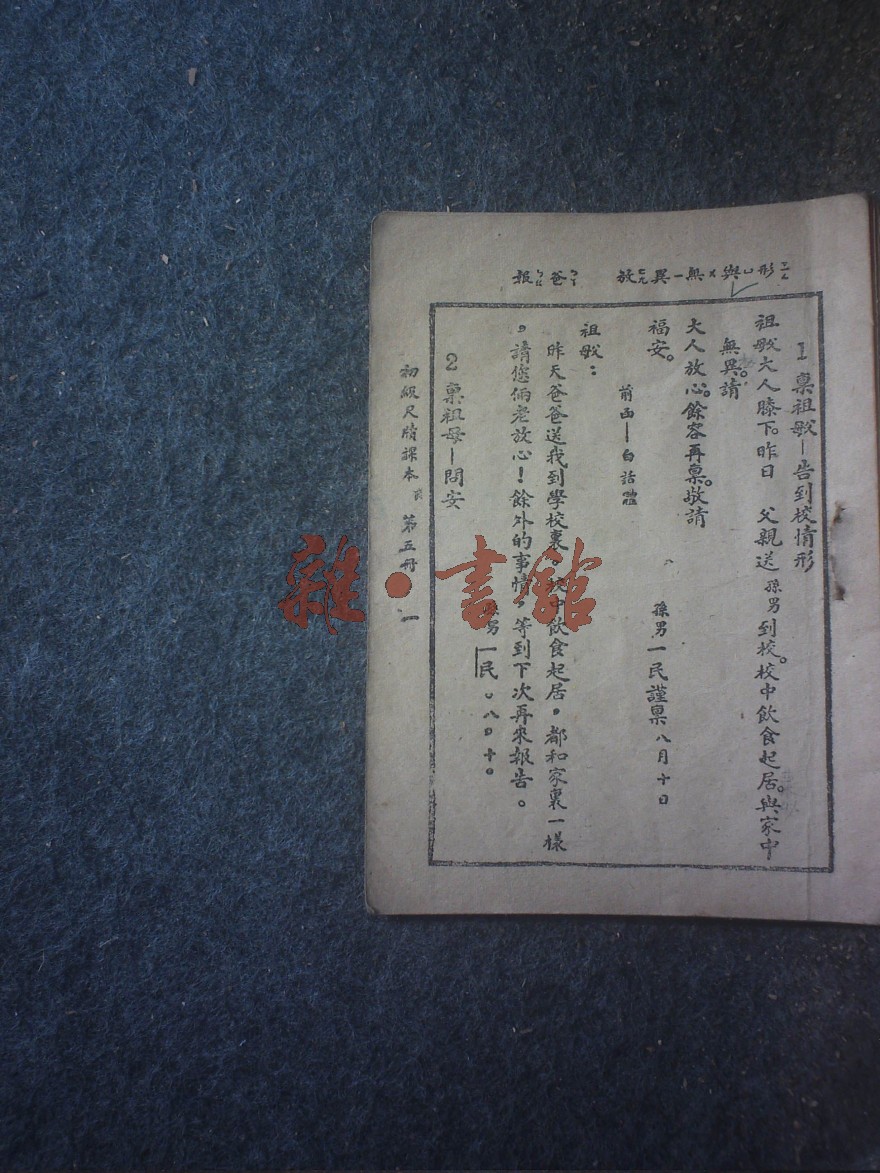 形ㄒㄧㄥ 與ㄩ 無ㄨ 異ㄧ 放ㄈㄤ 爸ㄅㄚ 報ㄅㄠ
1 稟祖 — 告到校情形
祖 大人膝下。昨日 父親送孫男到校。校中飲食起居。與家中
無異。請
大人放心。餘容再稟。敬請
福安。
孫男一民謹稟 八月十日
前函—白話體
祖 ：
昨天爸爸送我到學校裏，校中飲食起居。都和家裏一樣
，請您倆老放心！餘外的事情，等到下次再來報告。
孫男一民。八，十。
2 稟祖母—問安
初級尺牘課本 第五冊 一
雜·書館